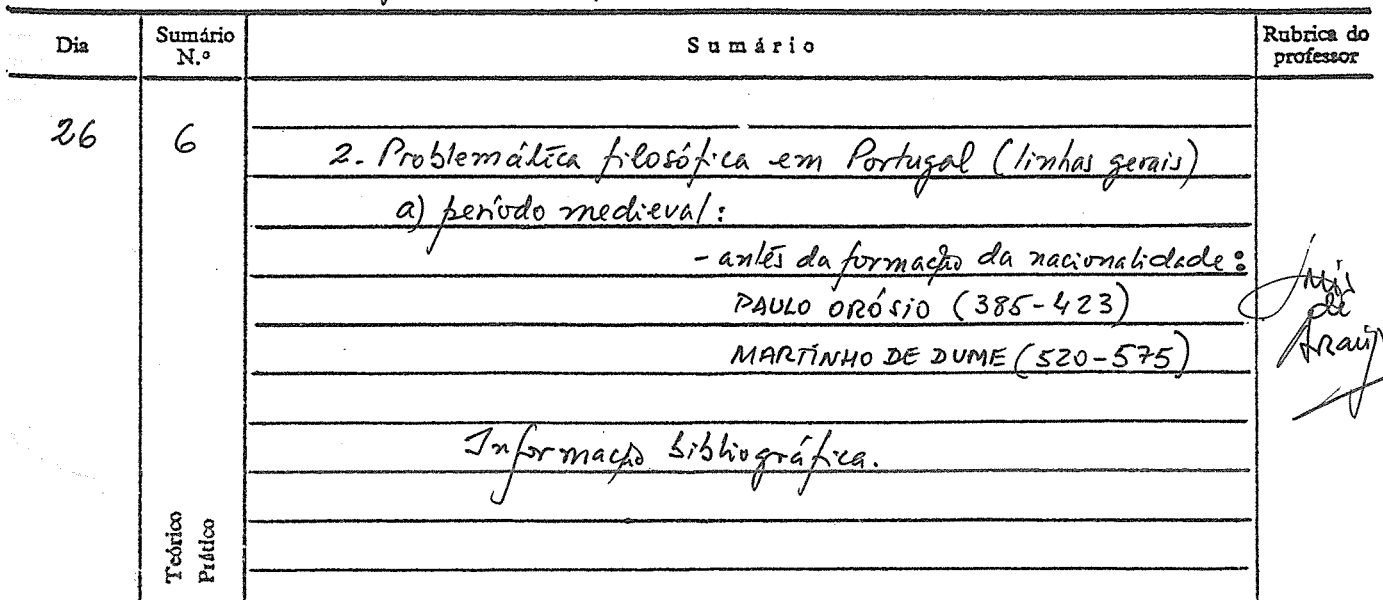 Dia
Sumário N.º
Sumário
Rubrica do professor
26
6
2. Problemática filosófica em Portugal (linhas gerais)
a) período medieval:
- antes da formação da nacionalidade:
PAULO ORÓSIO (385-423)
MARTINHO DE DUME (520-575)
Luís de Araújo
Informação bibliográfica.
Teórico
Prático